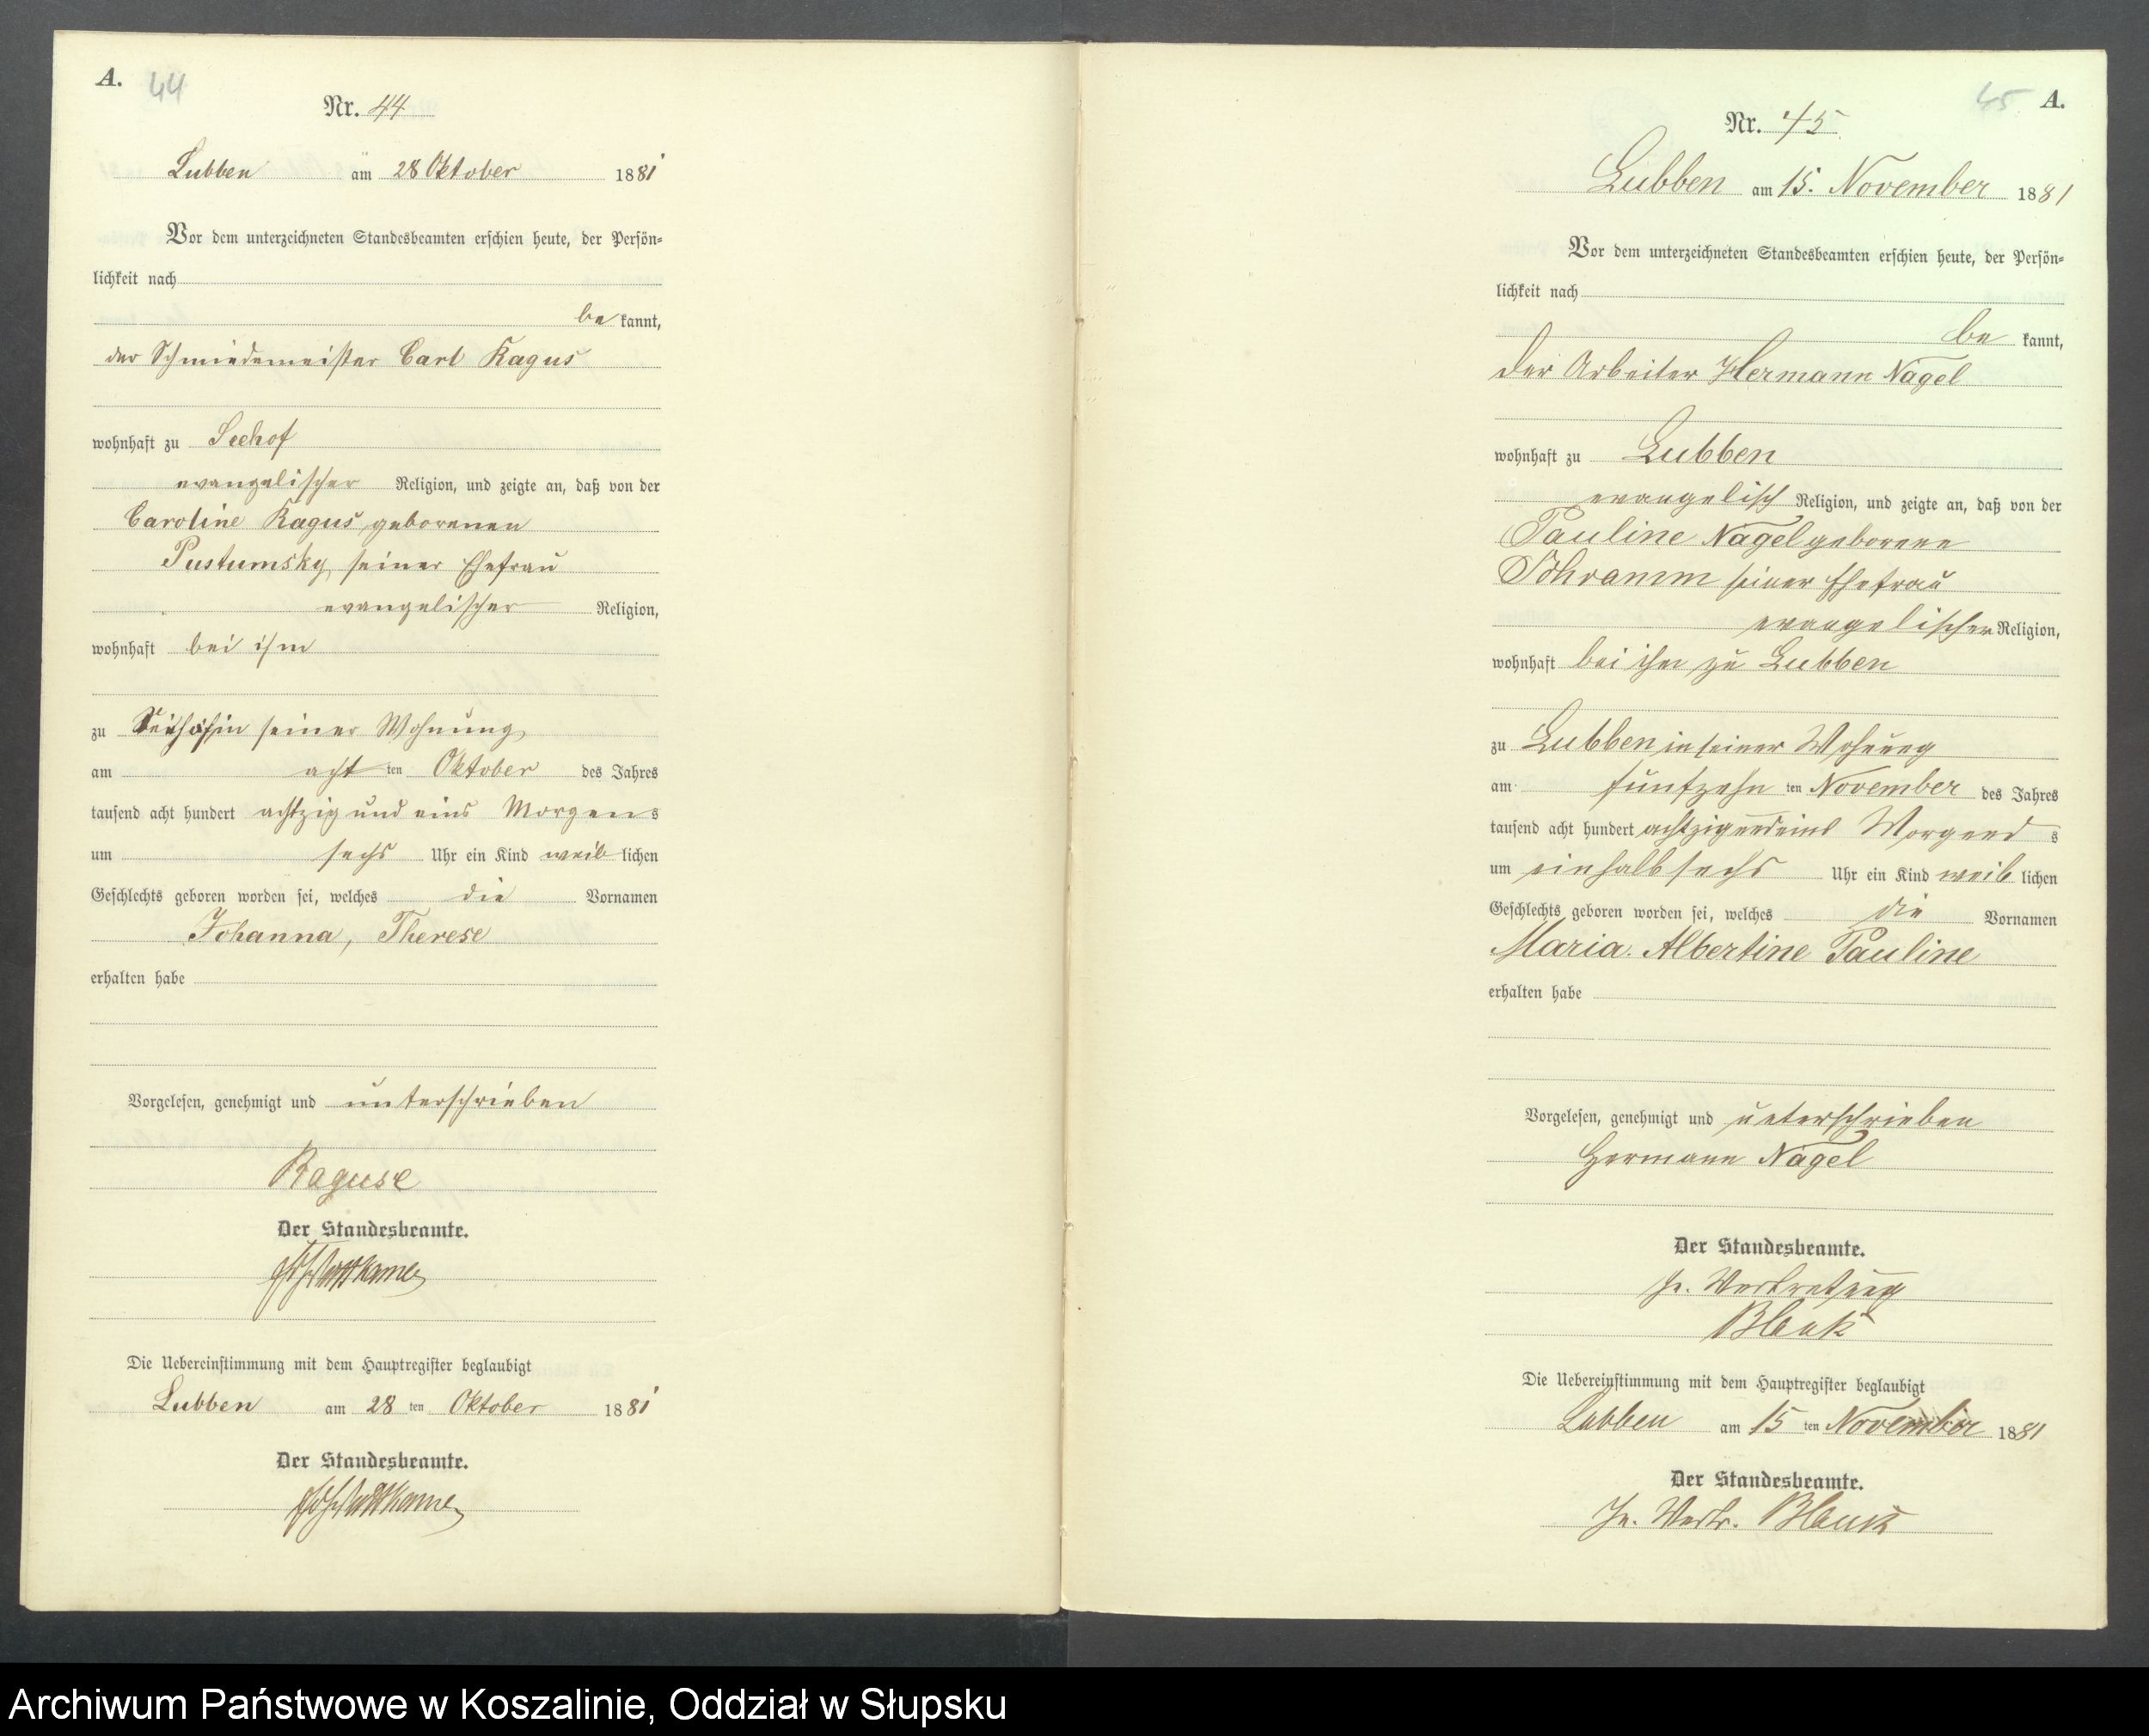 A. 44
Nr. 44
Lubben am 28 Oktober 1881
Vor dem unterzeichneten Standesbeamten erschien heute, der Persön-
lichkeit nach
be kannt,
der Schmiedemeister Carl Ragus
wohnhaft zu Seehof
evangelischer Religion, und zeigte an, daß von der
Caroline Ragus, geborenen
Pustumsky, seiner Ehefrau
evangelischer Religion,
wohnhaft bei ihm
zu Seehof in seiner Wohnung
am acht ten Oktober des Jahres
tausend acht hundert achtzig und eins Morgens
um sechs Uhr ein Kind weiblichen
Geschlechts geboren worden sei, welches die Vornamen
Johanna, Therese
erhalten habe
Vorgelesen, genehmigt und unterschrieben
Raguse
Der Standesbeamte.
Die Uebereinstimmung mit dem Hauptregister beglaubigt
Lubben am 28 ten Oktober 1881
Der Standesbeamte.
45 A.
Nr. 45
Lubben am 15. November 1881
Vor dem unterzeichneten Standesbeamten erschien heute, der Persön-
lichkeit nach
be kannt,
der Arbeiter Hermann Nagel
wohnhaft zu Lubben
evangelisch Religion, und zeigte an, daß von der
Pauline Nagel geborene
Schramm seiner Ehefrau
evangelischer Religion,
wohnhaft bei ihm zu Lubben
zu Lubben in seiner Wohnung
am fünfzehn ten November des Jahres
tausend acht hundert achtzigundeins Morgends
um einhalb sechs Uhr ein Kind weiblichen
Geschlechts geboren worden sei, welches die Vornamen
Maria. Albertine Pauline
erhalten habe
Vorgelesen, genehmigt und unterschrieben
Hermann Nagel
Der Standesbeamte.
In. Vertretung
Blank
Die Uebereinstimmung mit dem Hauptregister beglaubigt
Lubben am 15 ten November 1881
Der Standesbeamte.
In. Vertr. Blank
Archiwum Państwowe w Koszalinie, Oddział w Słupsku